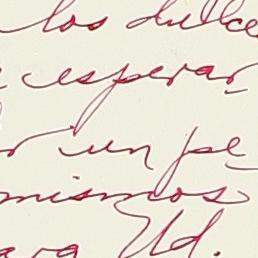 los dulce
esperar-
r un pe-
mismos
ara Ud.